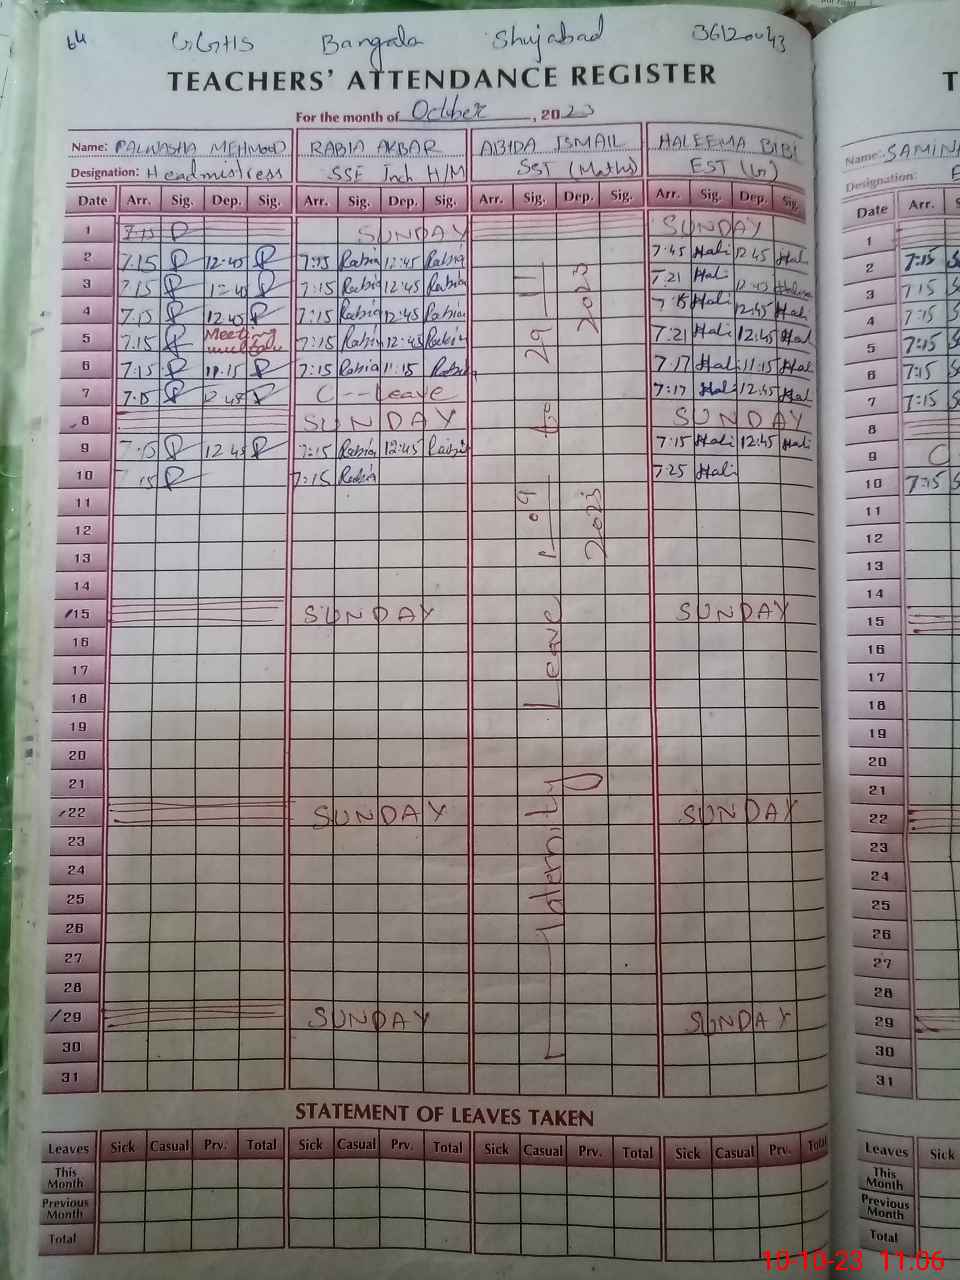 64 GGHS Bangala Shujabad 36120043
TEACHERS' ATTENDANCE REGISTER
For the month of October, 2023
Name: PALWASHA MEHMOOD RABIA AKBAR ABIDA ISMAIL HALEEMA BIBI
Designation: Headmistress SSE Inch H/M SST (Maths) EST (G)
Date Arr. Sig. Dep. Sig. Arr. Sig. Dep. Sig. Arr. Sig. Dep. Sig. Arr. Sig. Dep. Sig.
1 7:15 SUNDAY SUNDAY
2 7:15 12:45 7:15 Rabia 12:45 Rabia 7:45 Hali 12:45 Hali
3 7:15 12:45 7:15 Rabia 12:45 Rabia 7:21 Hali 12:45
4 7:15 12:45 7:15 Rabia 12:45 Rabia 7:15 Hali 12:45 Hali
5 7:15 Meeting 7:15 Rabia 12:45 Rabia 7:21 Hali 12:45 Hali
6 7:15 11:15 7:15 Rabia 11:15 Rabia 7:17 Hali 11:15 Hali
7 7:15 12:45 C--Leave 7:17 Hali 12:45 Hali
8 SUNDAY SUNDAY
9 7:15 12:45 7:15 Rabia 12:45 Rabia 7:15 Hali 12:45 Hali
10 15 7:15 Rabia 7:25 Hali
11
12
13
14
15 SUNDAY SUNDAY
16
17
18
19
20
21
22 SUNDAY SUNDAY
23
24
25
26
27
28
29 SUNDAY SUNDAY
30
31
Maternity Leave 1-09-2023 to 29-11-2023
STATEMENT OF LEAVES TAKEN
Leaves Sick Casual Prv. Total Sick Casual Prv. Total Sick Casual Prv. Total Sick Casual Prv. Total
This Month
Previous Month
Total
T
Name: SAMIN
Designation: E
Date Arr.
1
2 7:15
3 7:15
4 7:15
5 7:15
6 7:15
7 7:15
8
9 C
10 7:15
11
12
13
14
15
16
17
18
19
20
21
22
23
24
25
26
27
28
29
30
31
Leaves Sick
This Month
Previous Month
Total
10-10-23 11:06